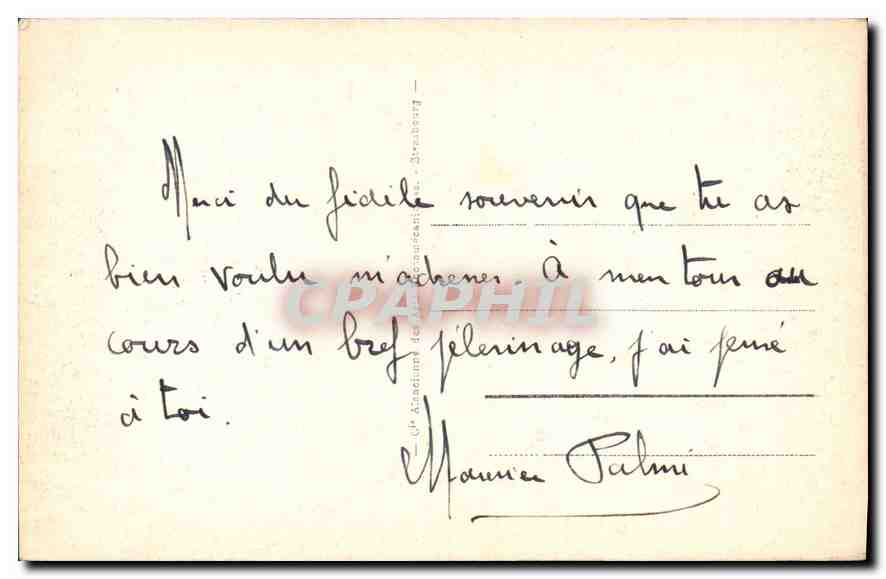 Merci du fidèle souvenir que tu as
bien voulu m'adresser. À mon tour au
cours d'un bref pélerinage, j'ai pensé
à toi.
Maurice Palmi
— Cie Alsacienne des Arts Photomécaniques. - Strasbourg —
CPAPHIL